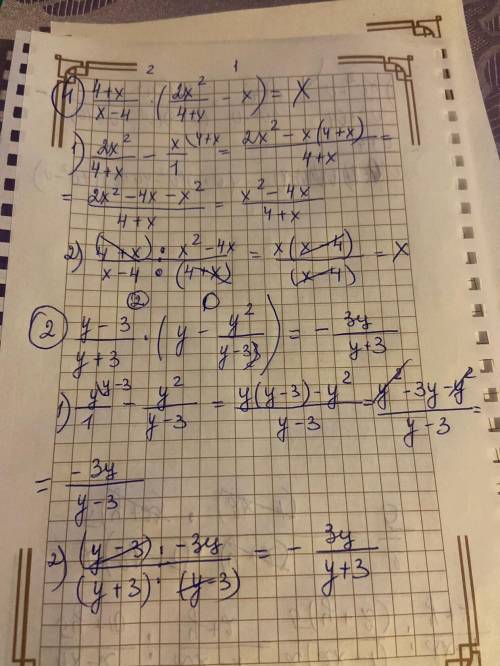 2 1
① (4+x)/(x-4) · (2x²/(4+x) - x) = X
1) 2x²/(4+x) - x/1 \4+x = (2x² - x(4+x))/(4+x) =
= (2x² - 4x - x²)/(4+x) = (x² - 4x)/(4+x)
2) (4+x)/(x-4) · (x² - 4x)/(4+x) = x(x-4)/(x-4) = X
② (y-3)/(y+3) · (y - y²/(y-3)) = - 3y/(y+3)
1) y/1 \y-3 - y²/(y-3) = (y(y-3) - y²)/(y-3) = (y² - 3y - y²)/(y-3) =
= -3y/(y-3)
2) (y-3)/(y+3) · -3y/(y-3) = - 3y/(y+3)